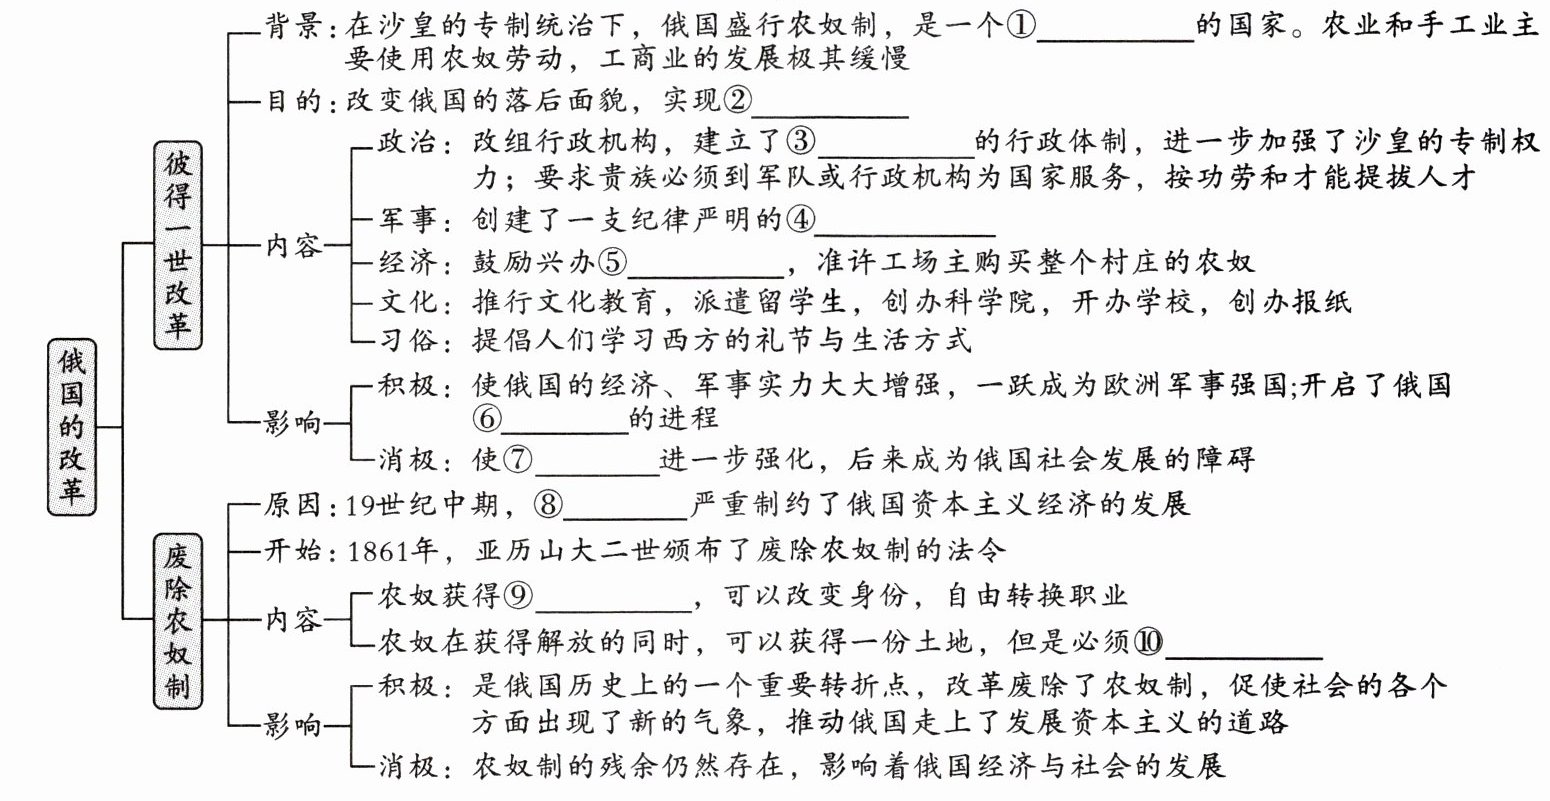 俄国的改革
彼得一世改革
背景:在沙皇的专制统治下，俄国盛行农奴制，是一个①__________的国家。农业和手工业主
要使用农奴劳动，工商业的发展极其缓慢
目的:改变俄国的落后面貌，实现②__________
内容
政治：改组行政机构，建立了③__________的行政体制，进一步加强了沙皇的专制权
力；要求贵族必须到军队或行政机构为国家服务，按功劳和才能提拔人才
军事：创建了一支纪律严明的④__________
经济：鼓励兴办⑤__________，准许工场主购买整个村庄的农奴
文化：推行文化教育，派遣留学生，创办科学院，开办学校，创办报纸
习俗：提倡人们学习西方的礼节与生活方式
影响
积极：使俄国的经济、军事实力大大增强，一跃成为欧洲军事强国;开启了俄国
⑥________的进程
消极：使⑦________进一步强化，后来成为俄国社会发展的障碍
废除农奴制
原因:19世纪中期，⑧________严重制约了俄国资本主义经济的发展
开始:1861年，亚历山大二世颁布了废除农奴制的法令
内容
农奴获得⑨__________，可以改变身份，自由转换职业
农奴在获得解放的同时，可以获得一份土地，但是必须⑩__________
影响
积极：是俄国历史上的一个重要转折点，改革废除了农奴制，促使社会的各个
方面出现了新的气象，推动俄国走上了发展资本主义的道路
消极：农奴制的残余仍然存在，影响着俄国经济与社会的发展